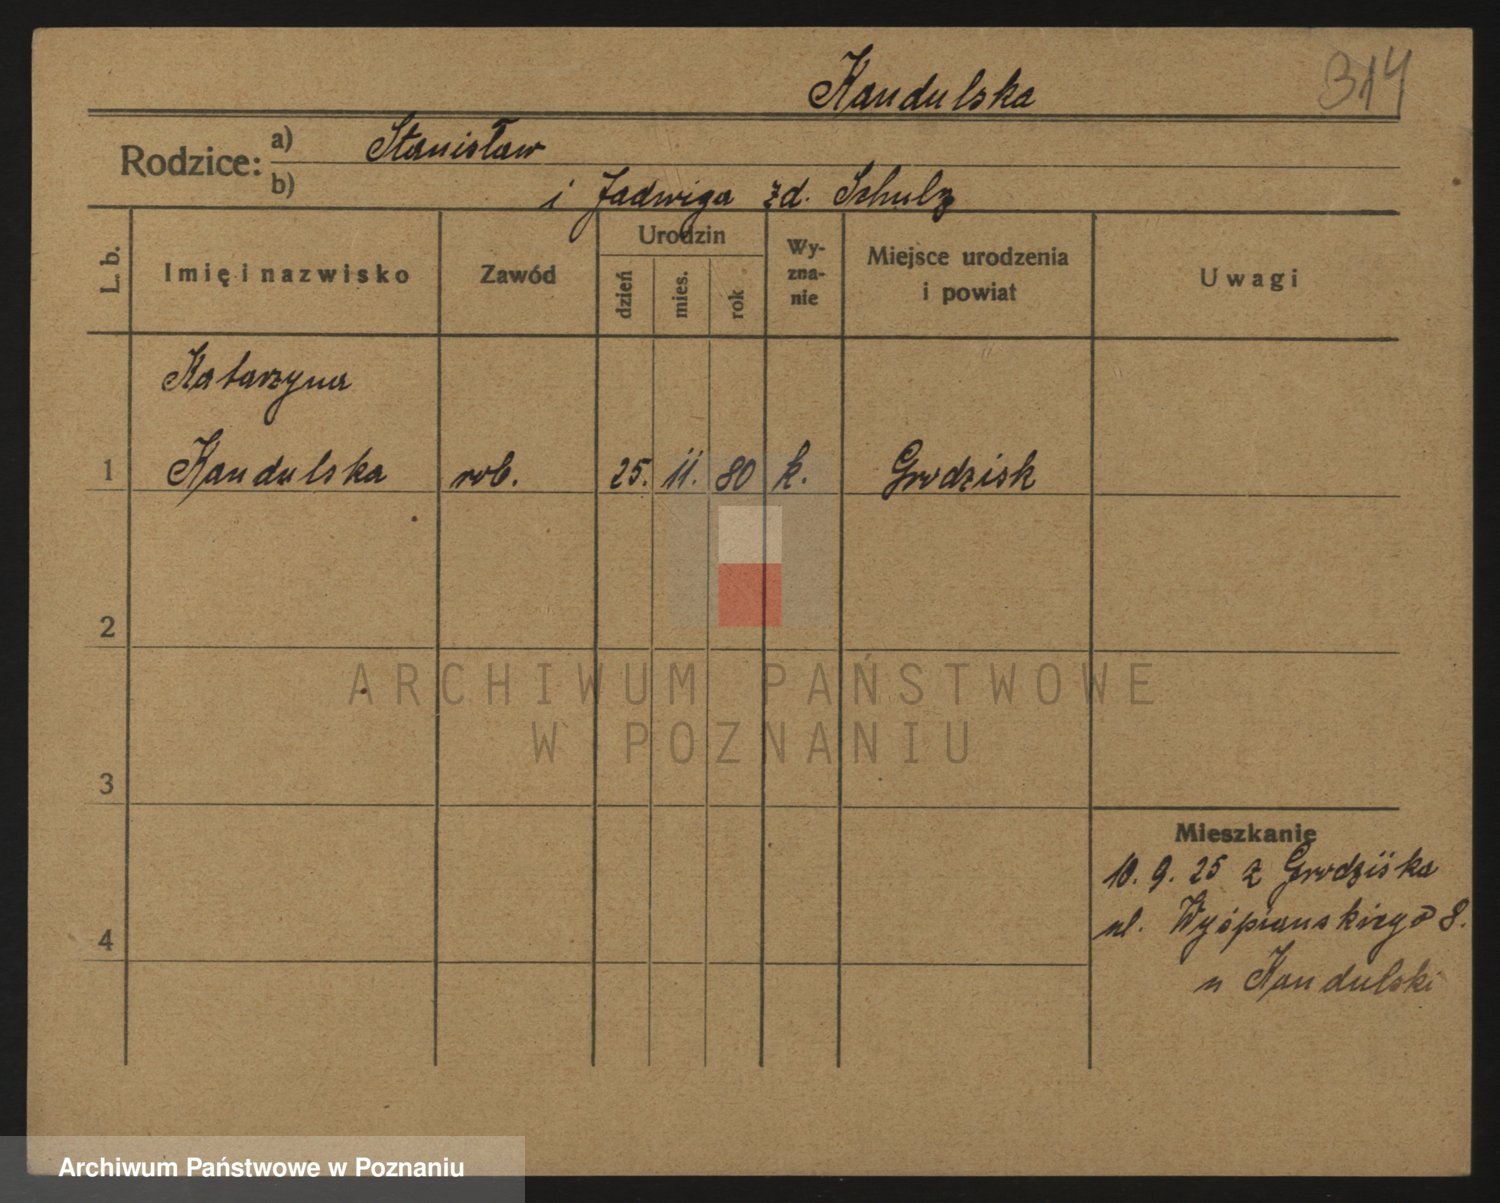 Kandulska
314
Rodzice: a) Stanisław
b) i Jadwiga zd. Schulz
L. b. Imię i nazwisko Zawód Urodzin dzień mies. rok Wy-zna-nie Miejsce urodzenia i powiat Uwagi
Katarzyna
1 Kandulska rob. 25. 11. 80 k. Grodzisk
2
ARCHIWUM PAŃSTWOWE
W POZNANIU
3
Mieszkanie
10. 9. 25 z Grodziska
ul. Wyśpianskiego 8.
4
u Kandulski
Archiwum Państwowe w Poznaniu